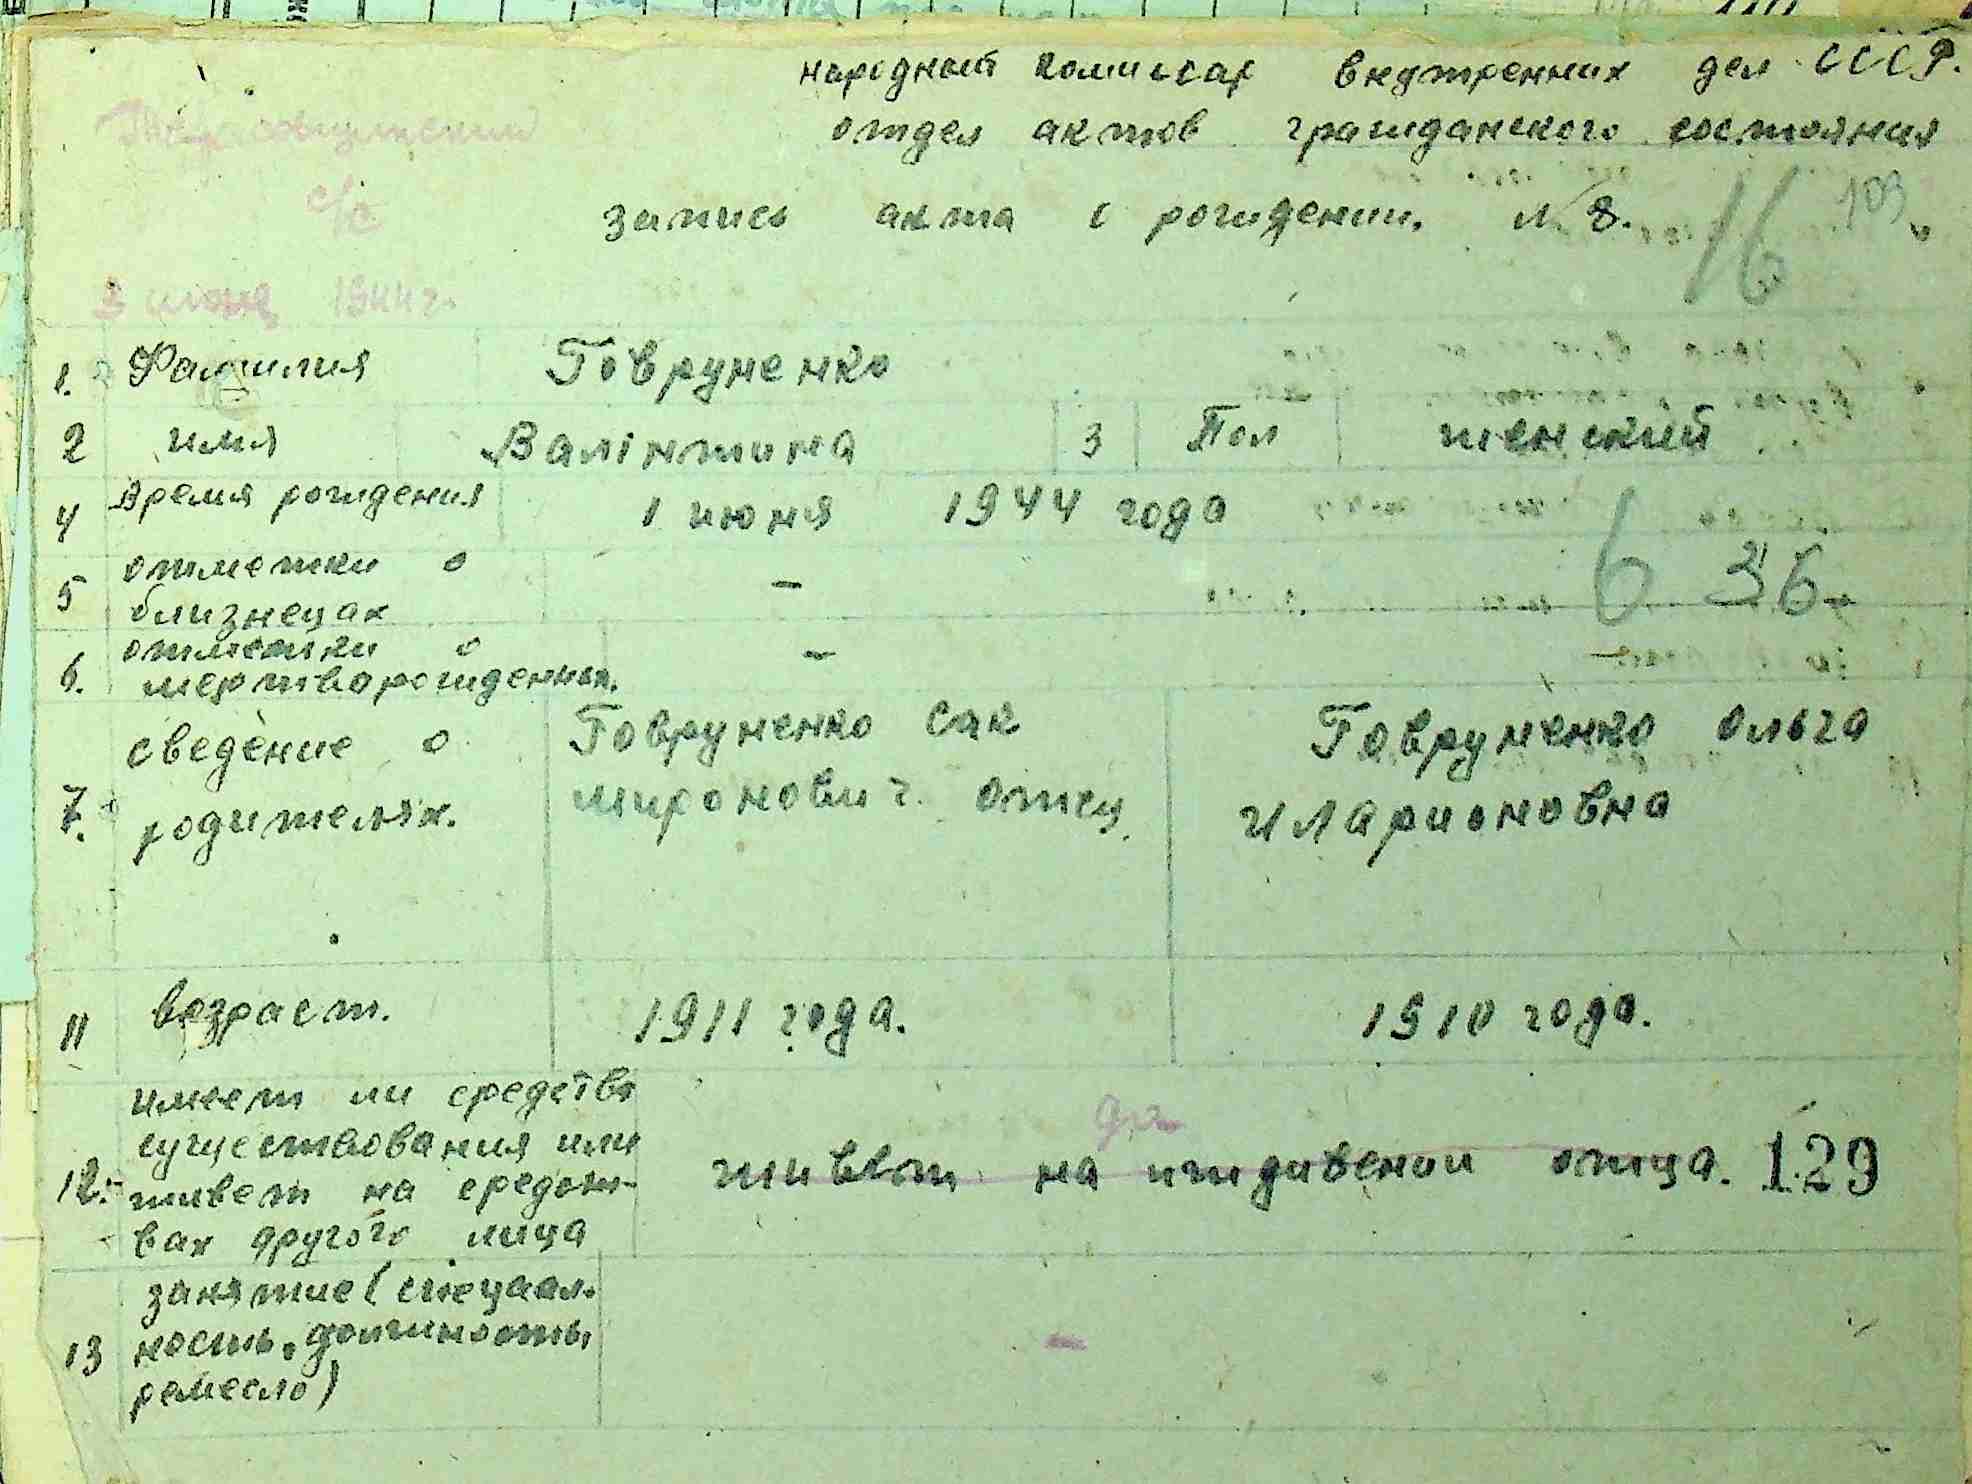 народный комиссар внутренних дел СССР.
отдел актов гражданского состояния
с/с
запись акта о рождении. № 8.
16 109
3 июня 1944 г.
1. Фамилия Говруненко
2 имя Валінтина 3 Пол женский
4 Время рождения 1 июня 1944 года
5 отметки о
близнецах -
6 36
6. отметки о
мертворожденных. -
7. сведение о
родителях.
Говруненко Сак
Миронович. отец
Говруненко Ольга
Иларионовна
11 возраст. 1911 года. 1910 года.
12. имеет ли средства
существования или
живет на средст-
вах другого лица
да
живет на иждивении отца. 129
13 занятие (специал-
ность, должность,
ремесло) -